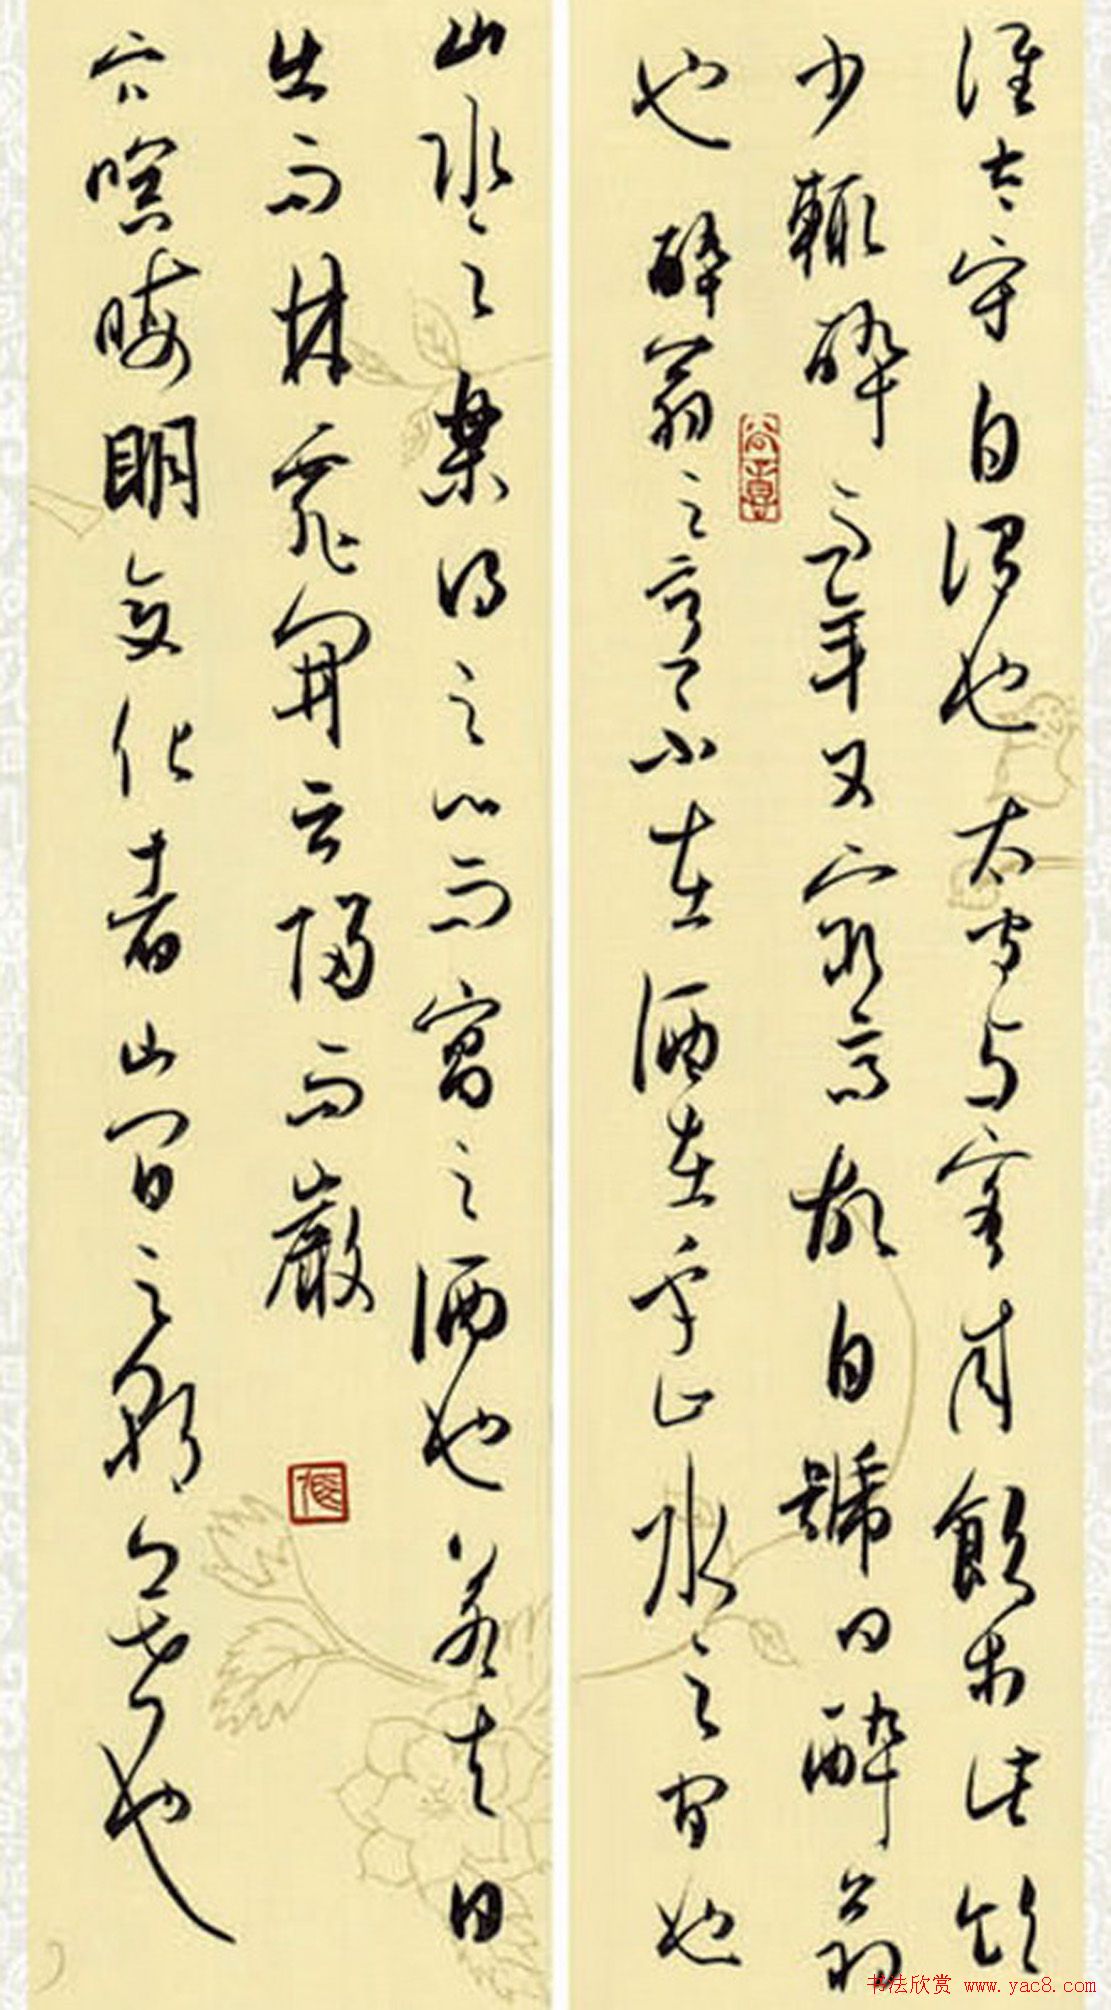 谁太守自谓也太守与客来飲於此飲
少輒醉而年又最高故自號曰醉翁
也醉翁之意不在酒在乎山水之间也
山水之樂得之心而寓之酒也若夫日
出而林霏開云归而巖
穴暝晦明变化者山间之朝暮也
书法欣赏 www.yac8.com